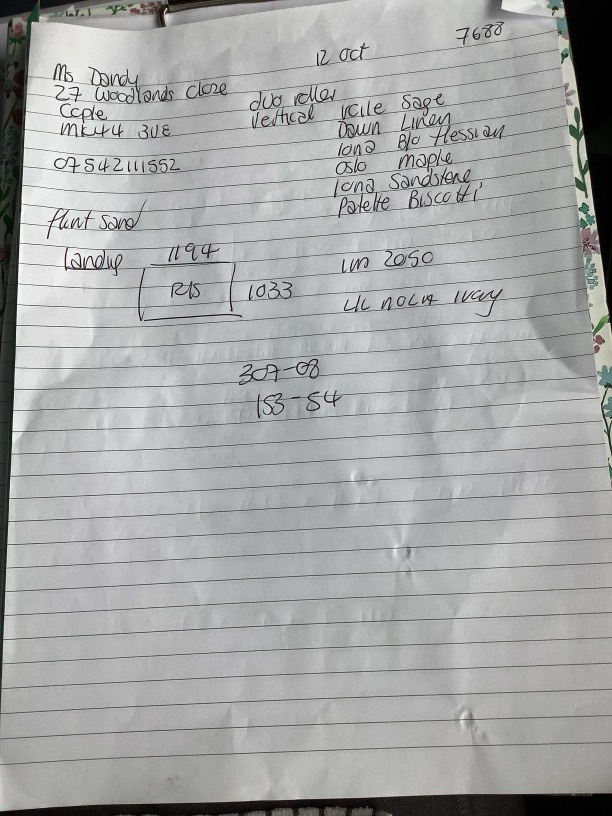 12 Oct
7688
Ms Dandy
27 Woodlands Close
Cople
MK44 3UE
07542111552
duo roller
vertical
Vale Sage
Dawn Linen
Iona B/o Hessian
Oslo Maple
Iona Sandstone
Palette Biscotti
flint sand
Landing
1194
R/S
1033
2050
307-08
153-54